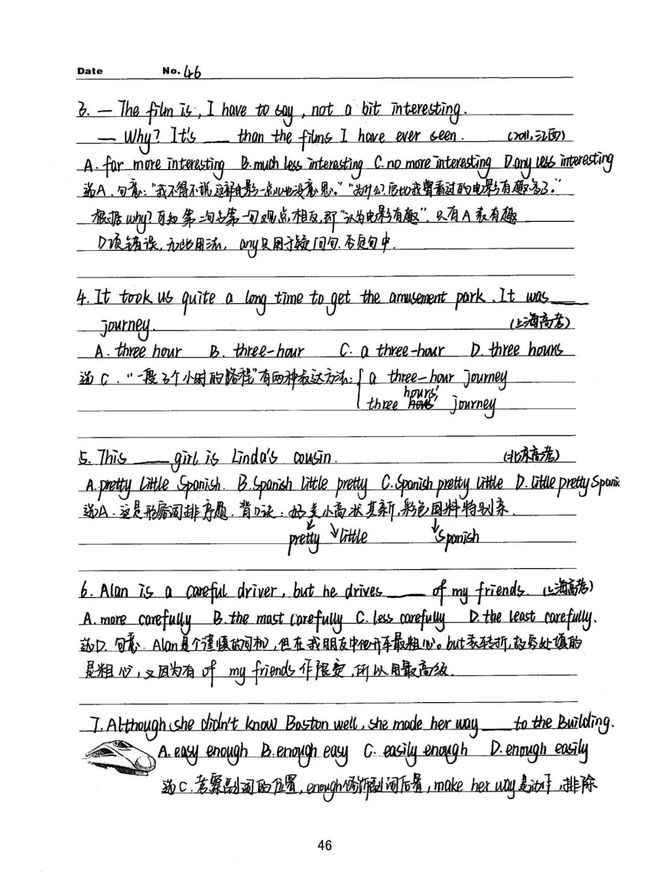 Date No. 46
3. — The film is, I have to say, not a bit interesting.
— Why? It's ___ than the films I have ever seen. (2011,江西)
A. far more interesting B. much less interesting C. no more interesting D. any less interesting
选A. 句意:"我不得不说,这部电影一点儿也没意思。""为什么?它比我曾看过的电影有趣多了。"
根据why?可知第二句与第一句观点相反,即"认为电影有趣",只有A表有趣
D项错误,无此用法, any只用于疑问句.否定句中.
4. It took us quite a long time to get the amusement park. It was ___
journey. (上海高考)
A. three hour B. three-hour C. a three-hour D. three hours
选C. "一段3个小时的路程"有两种表达方法: { a three-hour journey
three hours' journey
5. This ___ girl is Linda's cousin. (北京高考)
A. pretty little Spanish. B. Spanish little pretty C. Spanish pretty little D. little pretty Spanis
选A. 这是形容词排序题. 背口诀: 好美小高状其新,彩色国料特别亲.
pretty little Spanish
6. Alan is a careful driver, but he drives ___ of my friends. (上海高考)
A. more carefully B. the most carefully C. less carefully D. the least carefully.
选D. 句意. Alan是个谨慎的司机,但在我朋友中他开车最粗心。but表转折,故此处填的
是粗心,又因为有 of my friends作限定,所以用最高级.
7. Although she didn't know Boston well, she made her way ___ to the Building.
A. easy enough B. enough easy C. easily enough D. enough easily
选C. 考察副词的位置, enough修饰副词后置, make her way是动作,排除
46